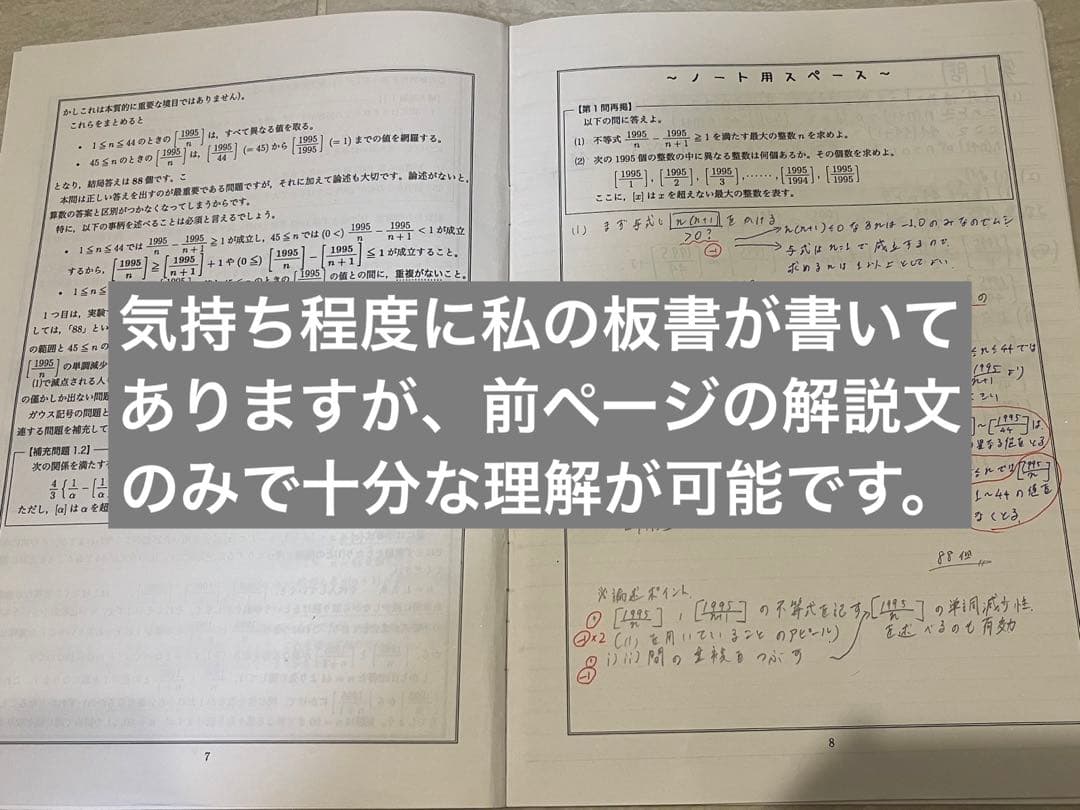 かしこれは本質的に重要な境目ではありません)。
これらをまとめると
・ 1≦n≦44 のときの [1995/n] は、すべて異なる値を取る。
・ 45≦n のときの [1995/n] は、[1995/44] (=45) から [1995/1995] (=1) までの値を網羅する。
となり、結局答えは 88 個です。こ
本問は正しい答えを出すのが最重要である問題ですが、それに加えて論述も大切です。論述がないと、
算数の答案と区別がつかなくなってしまうからです。
特に、以下の事柄を述べることは必須と言えるでしょう。
・ 1≦n≦44 では 1995/n − 1995/(n+1) ≧ 1 が成立し、45≦n では (0<) 1995/n − 1995/(n+1) < 1 が成立
するから、[1995/n] ≧ [1995/(n+1)] + 1 や (0≦) [1995/n] − [1995/(n+1)] ≦ 1 が成立すること。
・ 1≦n≦
の値との間に、重複がないこと。
1 つ目は、実験
しては、「88」とい
の範囲と 45≦n の
[1995/n] の単調減少
(1)で減点される人
の僅かしか出ない問題
ガウス記号の問題と
連する問題を補充して
【補充問題 1.2】
次の関係を満たす
4/3 {1/α − [1/
ただし、[α] は α を超
7
～ ノート用スペース ～
【第 1 問再掲】
以下の問に答えよ。
(1) 不等式 1995/n − 1995/(n+1) ≧ 1 を満たす最大の整数 n を求めよ。
(2) 次の 1995 個の整数の中に異なる整数は何個あるか。その個数を求めよ。
[1995/1], [1995/2], [1995/3], ……, [1995/1994], [1995/1995]
ここに、[x] は x を超えない最大の整数を表す。
(1) まず与式に n(n+1) をかける
>0?
-1
n(n+1)≦0 なる n は -1,0 のみなのでムシ
与式は n=1 で成立するので、
求める n は 1 以上としてよい
気持ち程度に私の板書が書いて
ありますが、前ページの解説文
のみで十分な理解が可能です。
の
≦n≦44 では
1995/n+1 より
~[1995/44] は
異なる値をとる
≦n では [1995/n]
1~44 の値を
なくとる。
88個
※論述ポイント
[1995/n], [1995/n+1] の不等式を記す
-1×2
((1) を用いていることのアピール)
[1995/n] の単調減少性
を述べるのも有効
i) ii) 間の重複をつぶす
-1
8